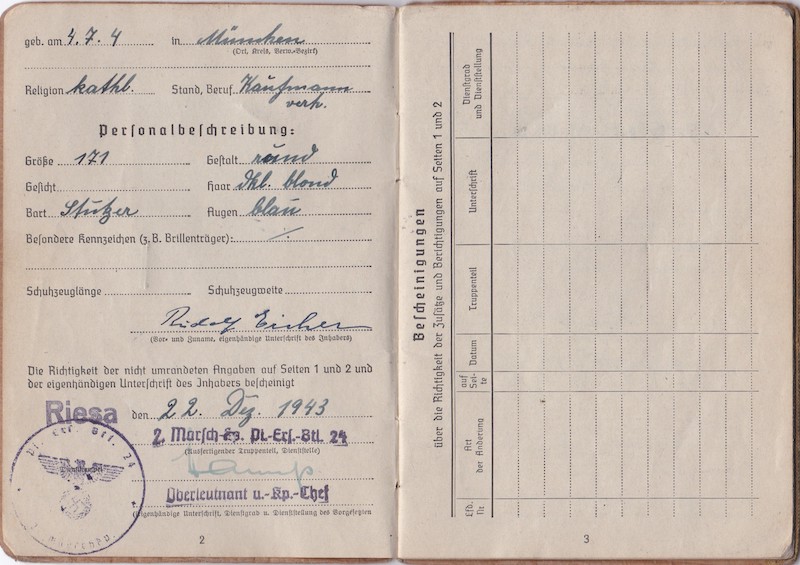 geb. am 4.7.4 in München
(Ort, Kreis, Verw.-Bezirk)
Religion kathl. Stand, Beruf Kaufmann
verh.
Personalbeschreibung:
Größe 171 Gestalt rund
Gesicht Haar dkl. blond
Bart Stutzer Augen blau
Besondere Kennzeichen (z. B. Brillenträger): /.
Schuhzeuglänge Schuhzeugweite
Rudolf Eicher
(Vor- und Zuname, eigenhändige Unterschrift des Inhabers)
Die Richtigkeit der nicht umrandeten Angaben auf Seiten 1 und 2 und
der eigenhändigen Unterschrift des Inhabers bescheinigt
Riesa den 22. Dez. 1943
2. Marsch-Kp. Pi.-Ers.-Btl. 24
(Ausfertigender Truppenteil, Dienststelle)
Oberleutnant u. Kp.-Chef
(Eigenhändige Unterschrift, Dienstgrad u. Dienststellung des Vorgesetzten
Pi. Ers. Btl. 24
2
Bescheinigungen
über die Richtigkeit der Zusätze und Berichtigungen auf Seiten 1 und 2
Lfd. Nr.
Art der Änderung
auf Seite
Datum
Truppenteil
Unterschrift
Dienstgrad und Dienststellung
3